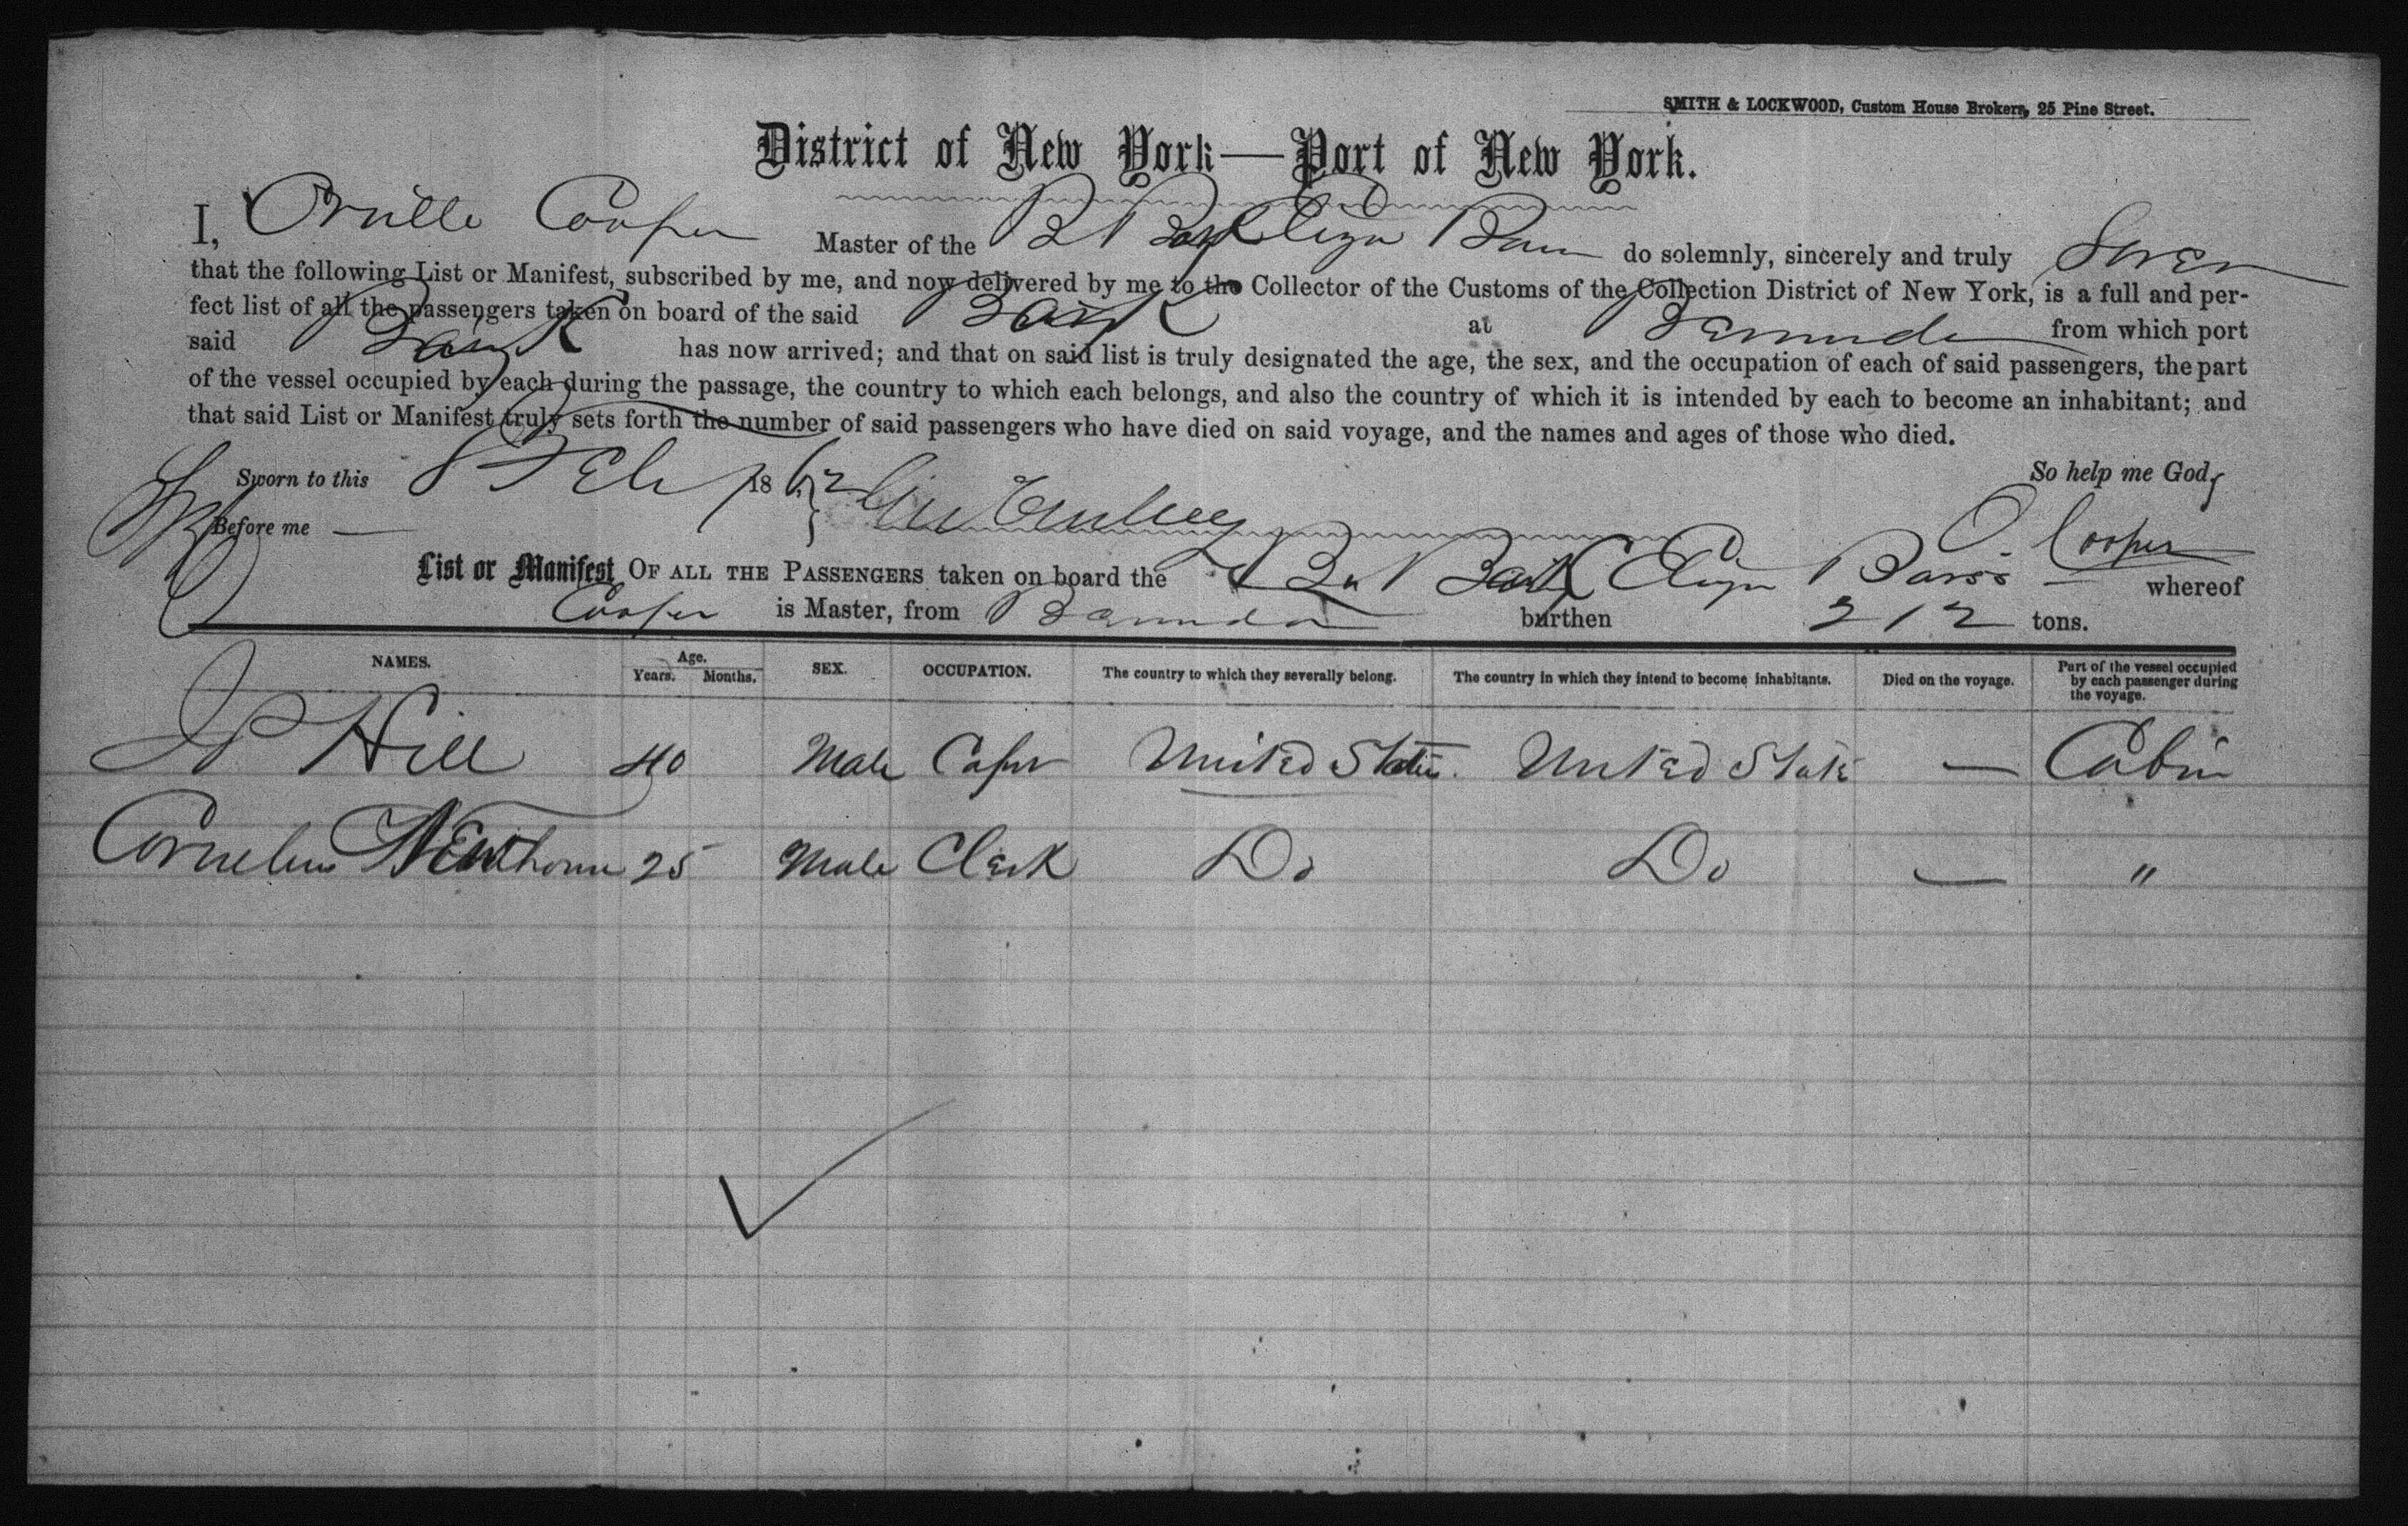 SMITH & LOCKWOOD, Custom House Brokers, 25 Pine Street.
District of New York—Port of New York.
I, Orville Cooper Master of the Br Bark Eliza Barss do solemnly, sincerely and truly Swear
that the following List or Manifest, subscribed by me, and now delivered by me to the Collector of the Customs of the Collection District of New York, is a full and per-
fect list of all the passengers taken on board of the said Bark at Bermuda from which port
said Bark has now arrived; and that on said list is truly designated the age, the sex, and the occupation of each of said passengers, the part
of the vessel occupied by each during the passage, the country to which each belongs, and also the country of which it is intended by each to become an inhabitant; and
that said List or Manifest truly sets forth the number of said passengers who have died on said voyage, and the names and ages of those who died.
Sworn to this 8 Feb 1862 So help me God,
Before me — O Cooper
List or Manifest OF ALL THE PASSENGERS taken on board the Br Bark Eliza Barss whereof
Cooper is Master, from Bermuda burthen 212 tons.
NAMES. Age. Years. Months. SEX. OCCUPATION. The country to which they severally belong. The country in which they intend to become inhabitants. Died on the voyage. Part of the vessel occupied by each passenger during the voyage.
J P Hill 40 Male United States. United State — Cabin
Cornelius 25 Male Clerk Do Do — "